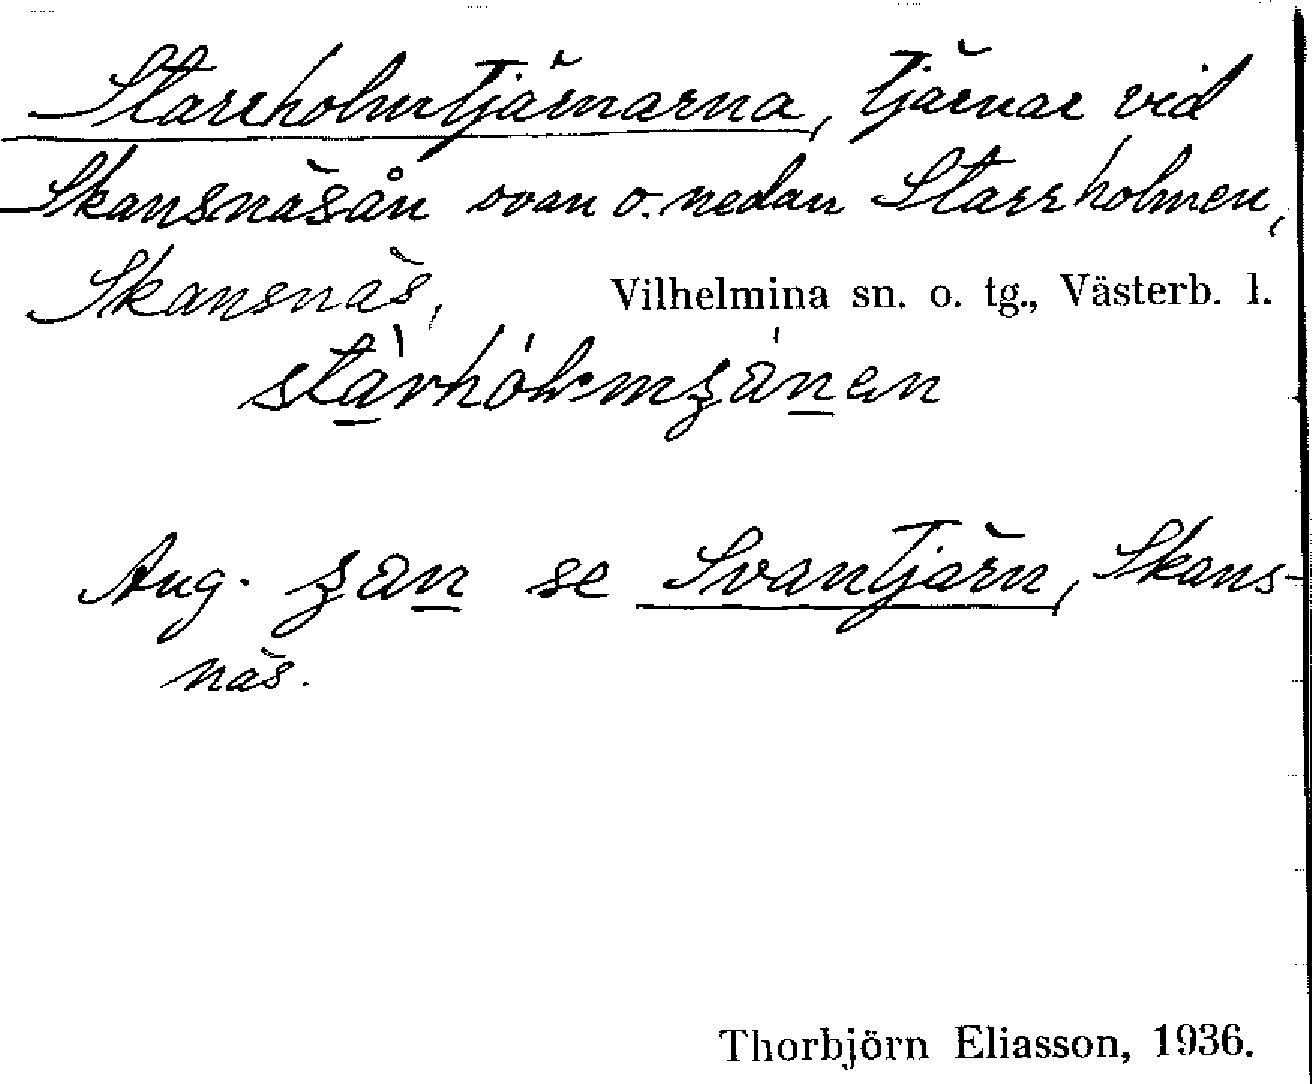 Starrholmtjärnarna, tjärnar vid
Skansnäsån ovan o. nedan Starrholmen,
Skansnäs, Vilhelmina sn. o. tg., Västerb. l.
Ang. se Svantjärn, Skans-
näs.
Thorbjörn Eliasson, 1936.